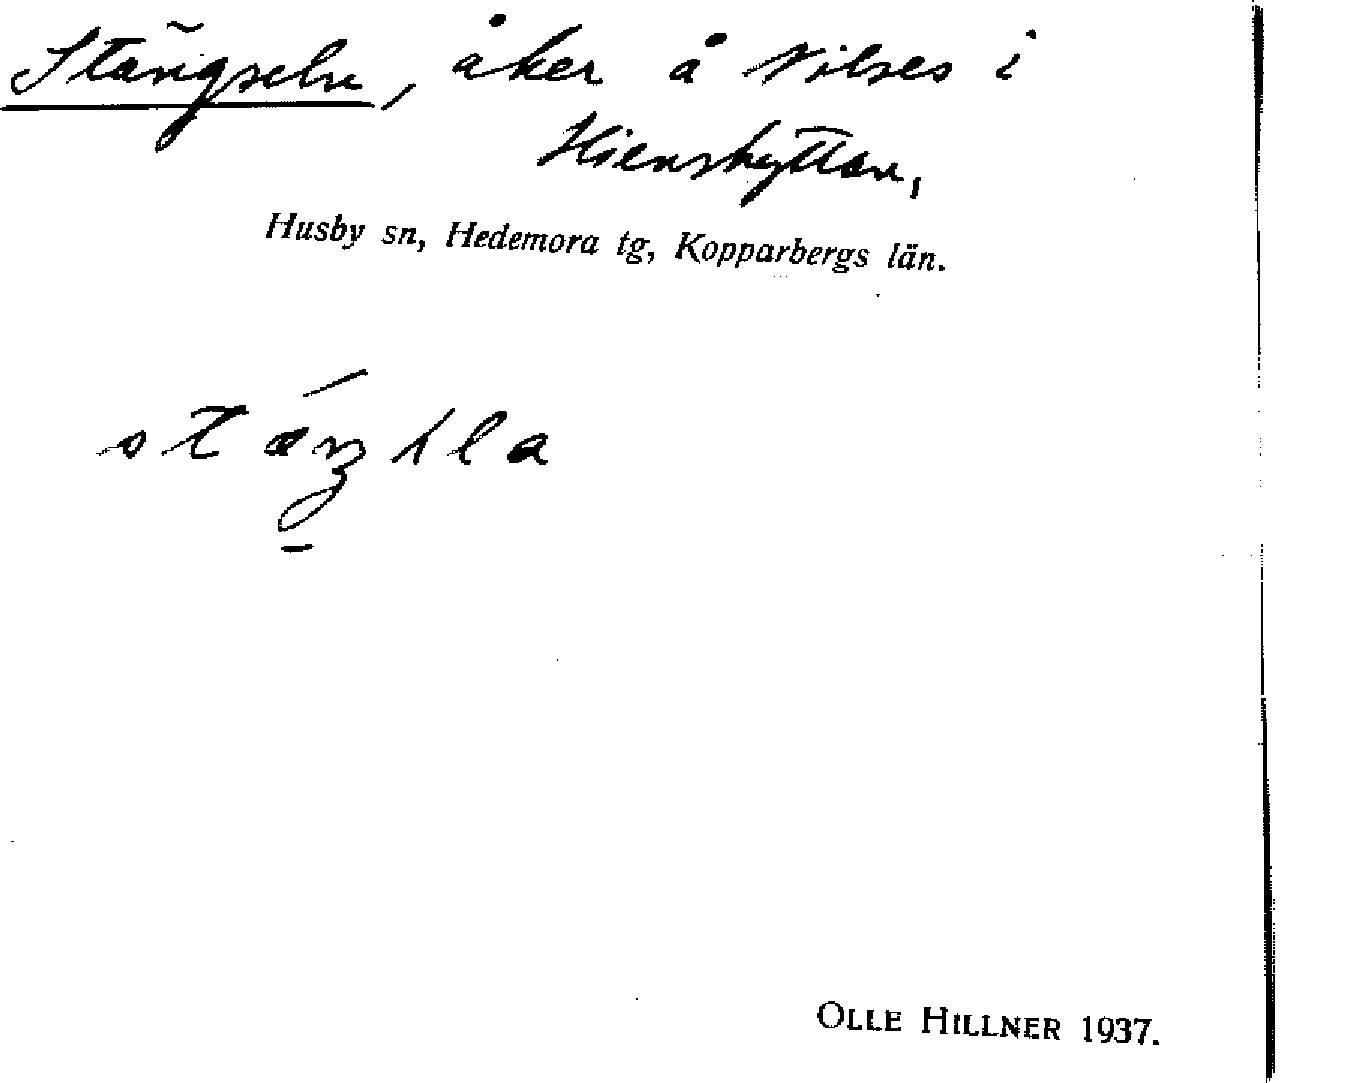 Stängseln, åker å Nilses i
Hienshyttan,
Husby sn, Hedemora tg, Kopparbergs län.
OLLE HILLNER 1937.